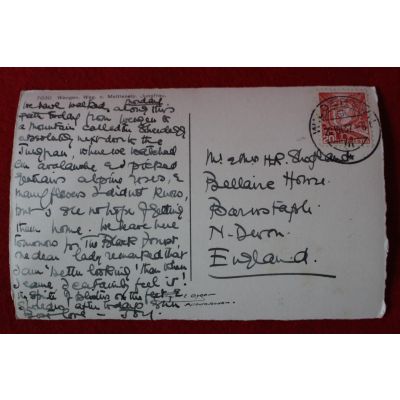 7030 Wengen. Weg z. Mettlenalp. Jungfrau
We have walked along this
path today from Wengen to
a mountain called the
absolutely next door to the
Jungfrau, where we watched
an avalanche and picked
gentians alpine roses, &
many flowers I didnt know,
but I see no hope of getting
them home. We leave here
tomorrow for the Black Forest,
one dear lady remarked that
I am "better looking" than when
I came. I certainly feel it!
in spite of blisters on the feet &
after todays sun
Best love
Mr & Mrs H.R. Shopland
Bellaire House
Barnstaple
N. Devon.
England.